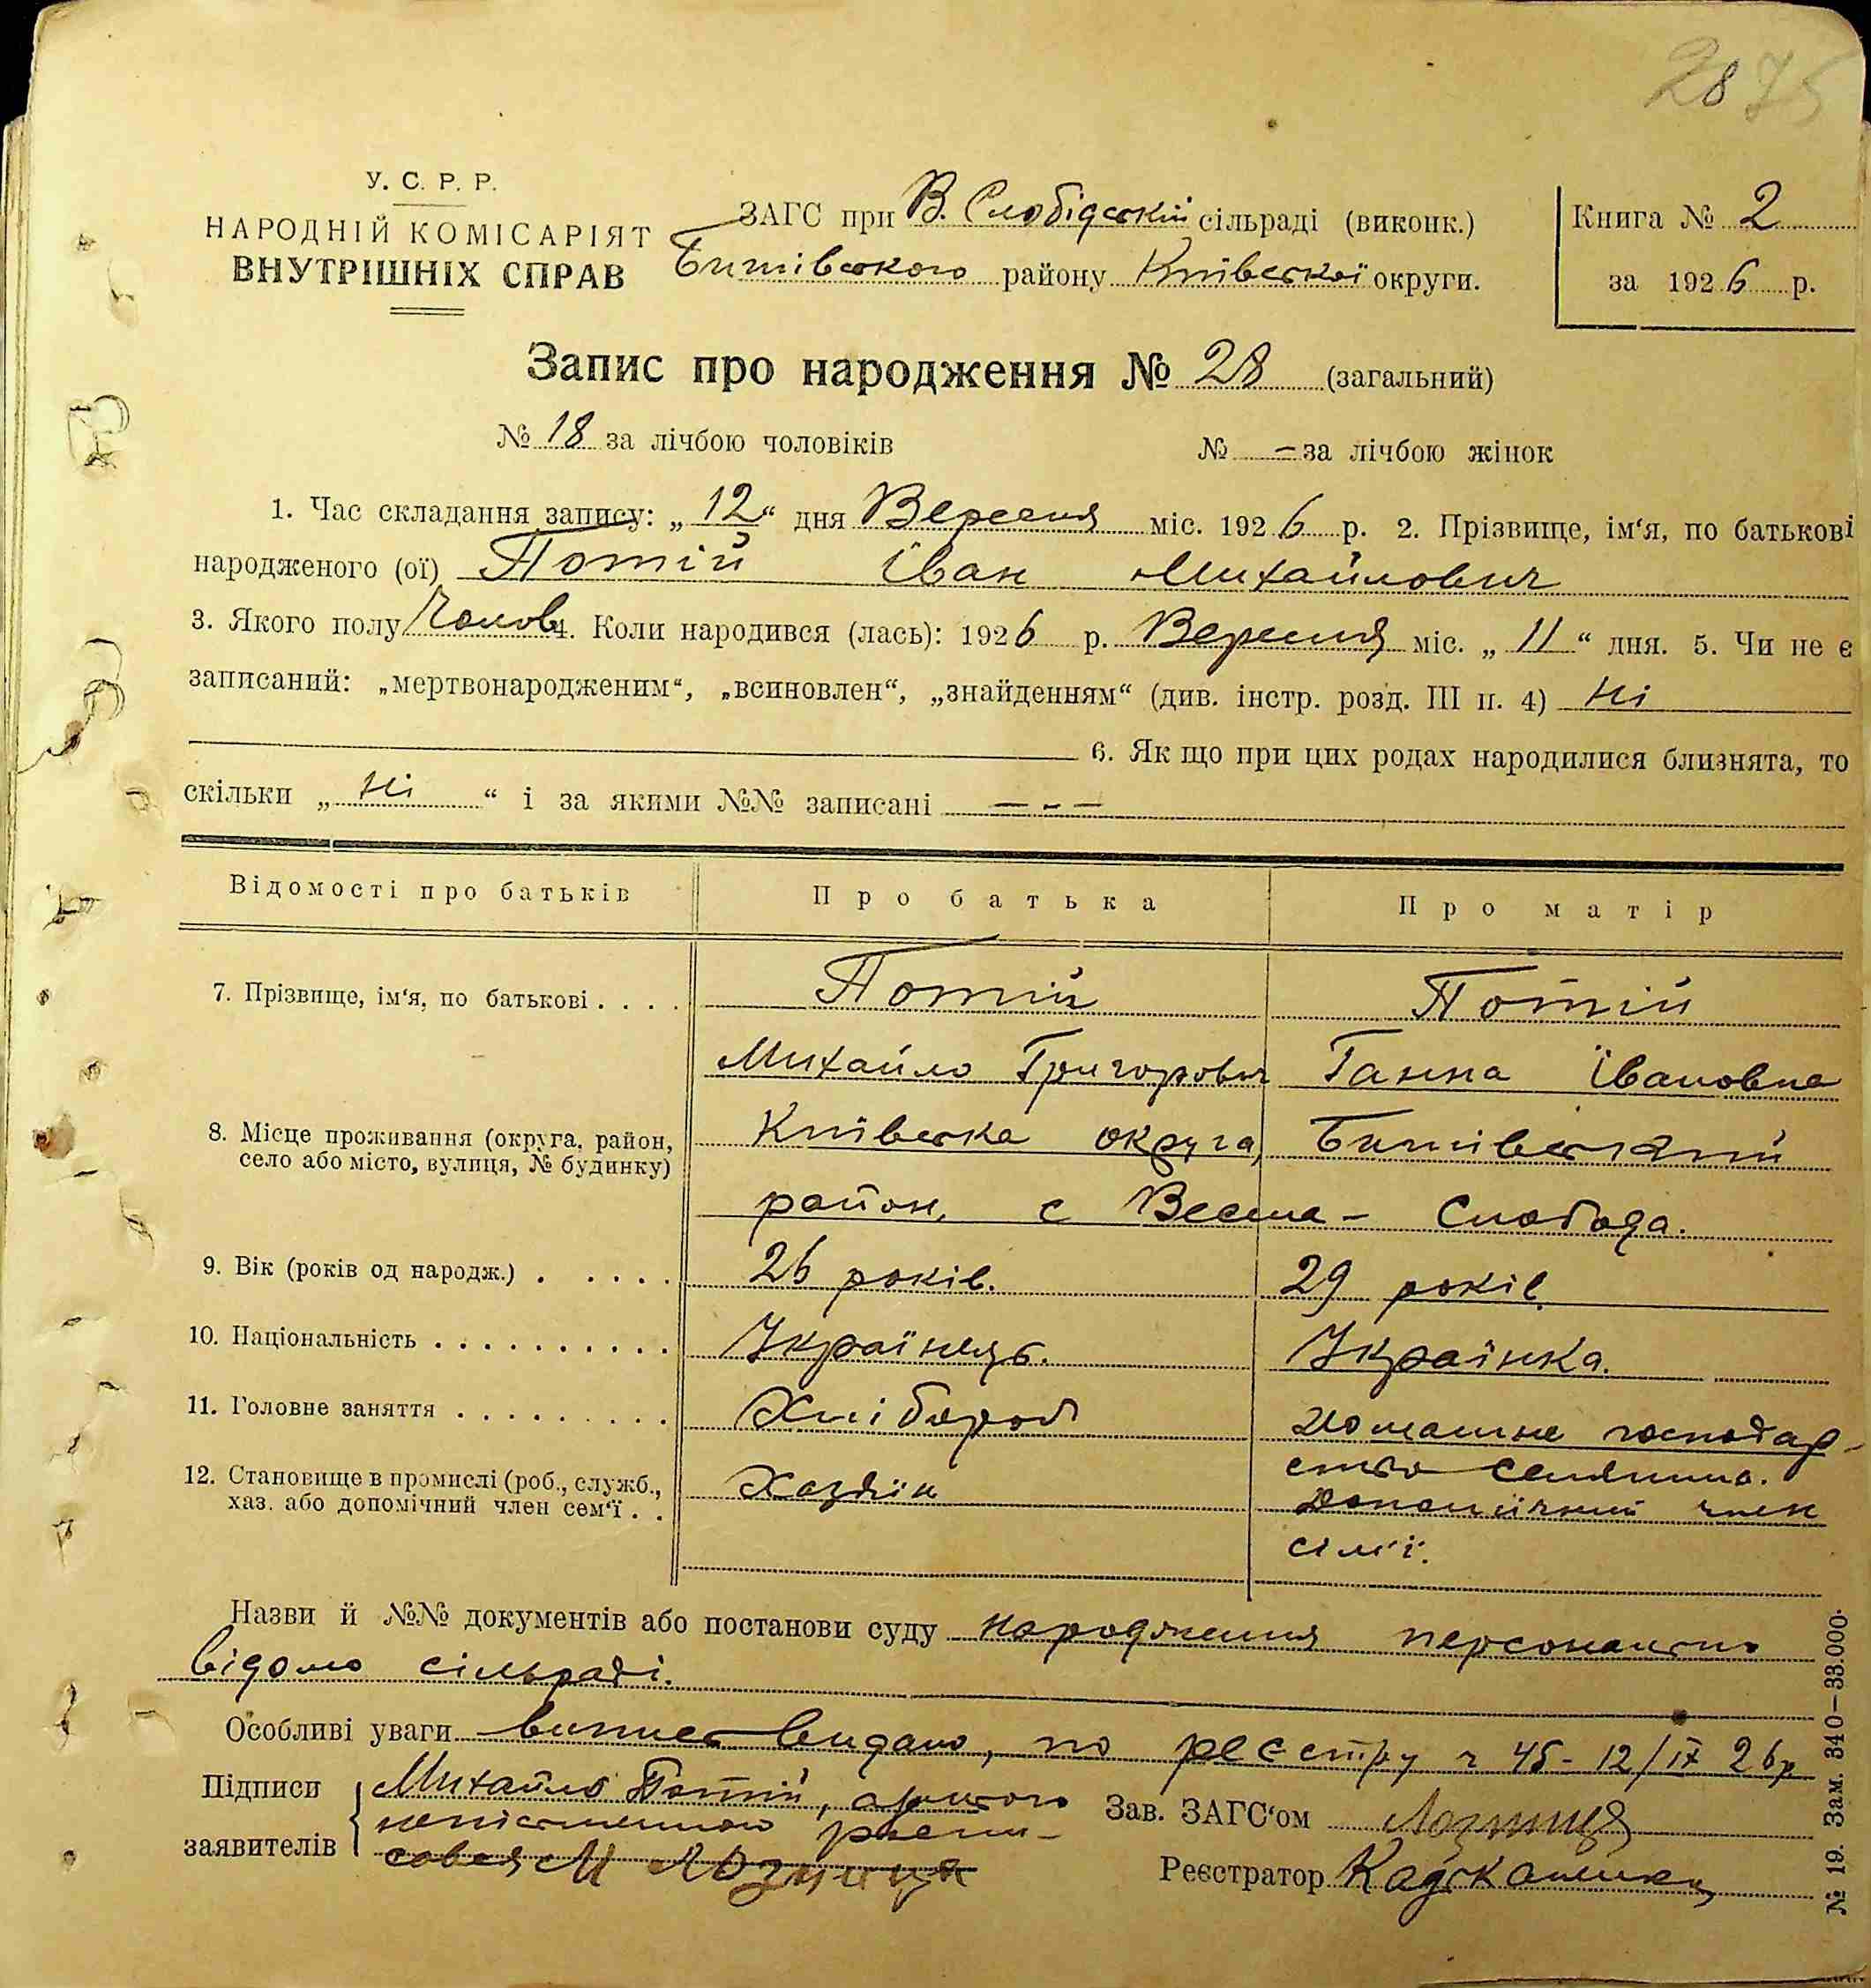 2875
У. С. Р. Р.
НАРОДНІЙ КОМІСАРІЯТ
ВНУТРІШНІХ СПРАВ
ЗАГС при В. Слобідській сільраді (виконк.)
Бишівського району Київської округи.
Книга № 2
за 1926 р.
Запис про народження № 28 (загальний)
№ 18 за лічбою чоловіків № – за лічбою жінок
1. Час складання запису: „12“ дня Вересня міс. 1926 р. 2. Прізвище, ім‘я, по батькові
народженого (ої) Потій Іван Михайлович
3. Якого полу Чолов. 4. Коли народився (лась): 1926 р. Вересня міс. „11“ дня. 5. Чи не є
записаний: „мертвонародженим“, „всиновлен“, „знайденням“ (див. інстр. розд. III п. 4) Ні
6. Як що при цих родах народилися близнята, то
скільки „Ні“ і за якими №№ записані – - –
Відомості про батьків Про батька Про матір
7. Прізвище, ім‘я, по батькові . . . . Потій Потій
Михайло Григорович Ганна Івановна
8. Місце проживання (округа, район,
село або місто, вулиця, № будинку)
Київська округа, Бишівський
район, с Весела - Слобода.
9. Вік (років од народж.) . . . . . 26 років. 29 років
10. Національність . . . . . . . . . . Українець. Українка.
11. Головне заняття . . . . . . . . . Хлібороб Домашнє господар-
ство селянина.
12. Становище в промислі (роб., служб.,
хаз. або допомічний член сем‘ї . .
Хазяїн Допомічний член
сім'ї.
Назви й №№ документів або постанови суду народження персонально
відомо сільраді.
Особливі уваги випис видано, по реєстру ч 45 - 12/IX 26р
Підписи
заявителів
Михайло Потій, а
неписьменного роспи-
совся М Лозниця
Зав. ЗАГС‘ом Лозниця
Реєстратор
№ 19. Зам. 340—33.000.